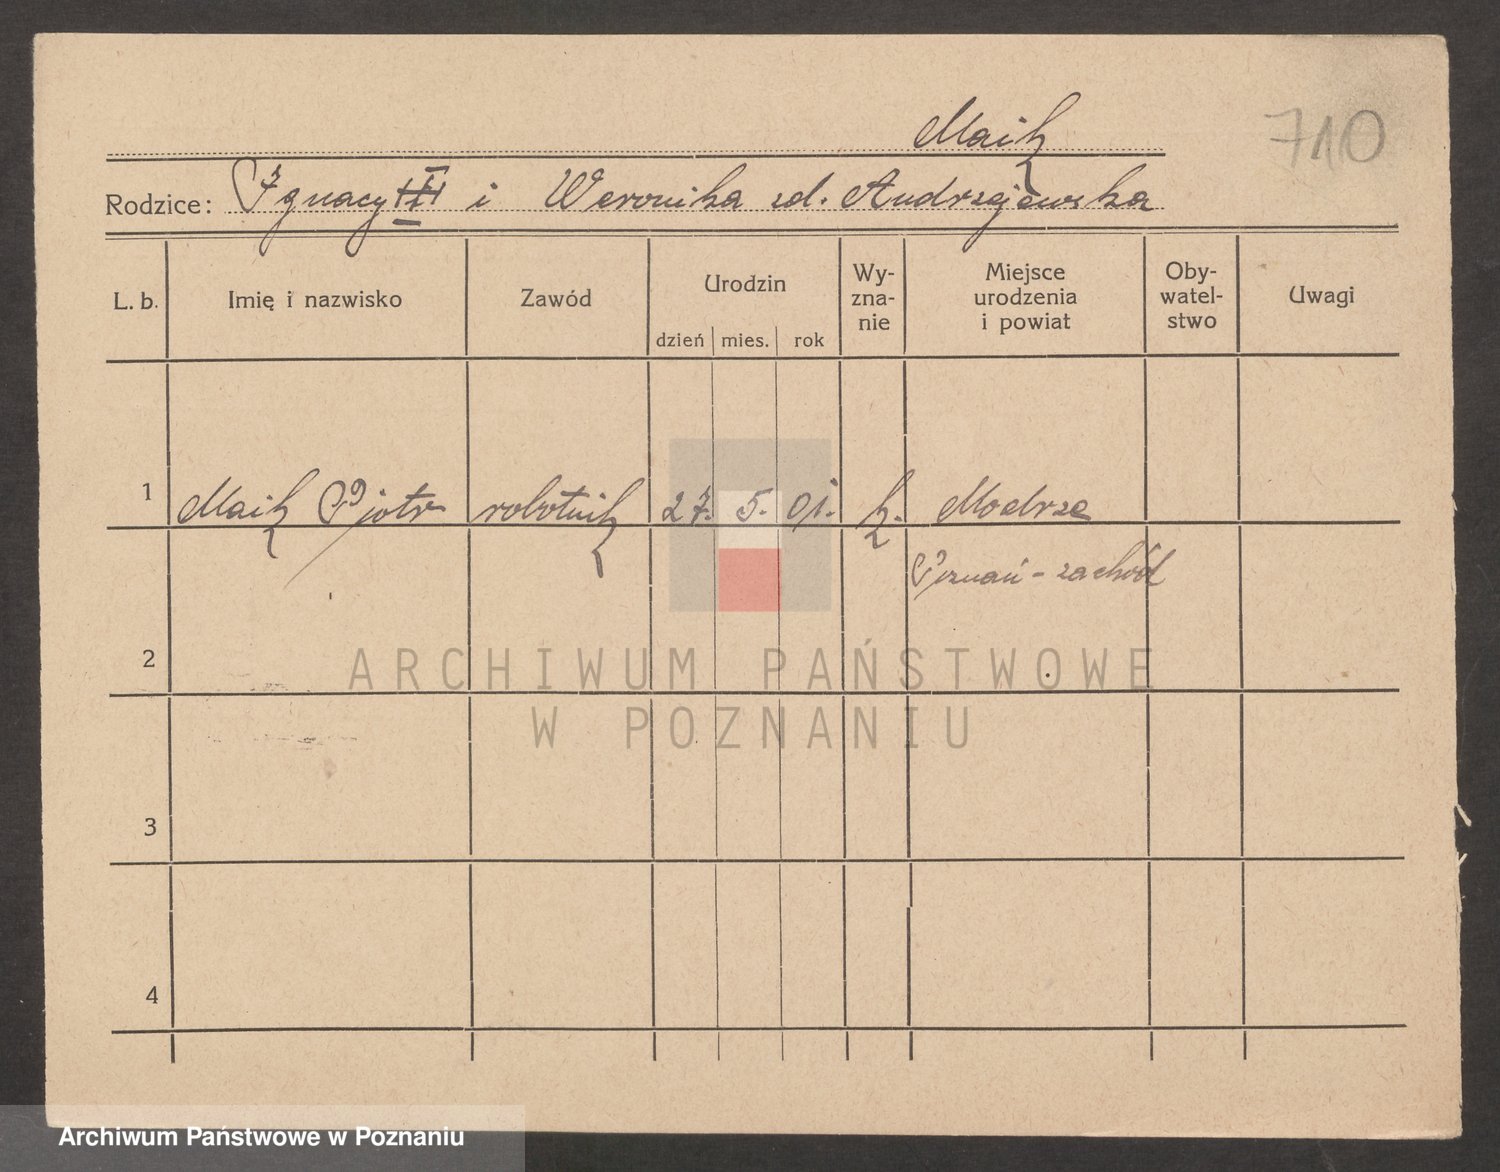 Maik
710
Rodzice: Ignacy i Weronika zd. Andrzejewska
L. b. Imię i nazwisko Zawód Urodzin dzień mies. rok Wy-zna-nie Miejsce urodzenia i powiat Oby-watel-stwo Uwagi
1 Maik Pjotr robotnik 27. 5. 01. k. Modrze
Poznań - zachód
2
ARCHIWUM PAŃSTWOWE
W POZNANIU
3
4
Archiwum Państwowe w Poznaniu